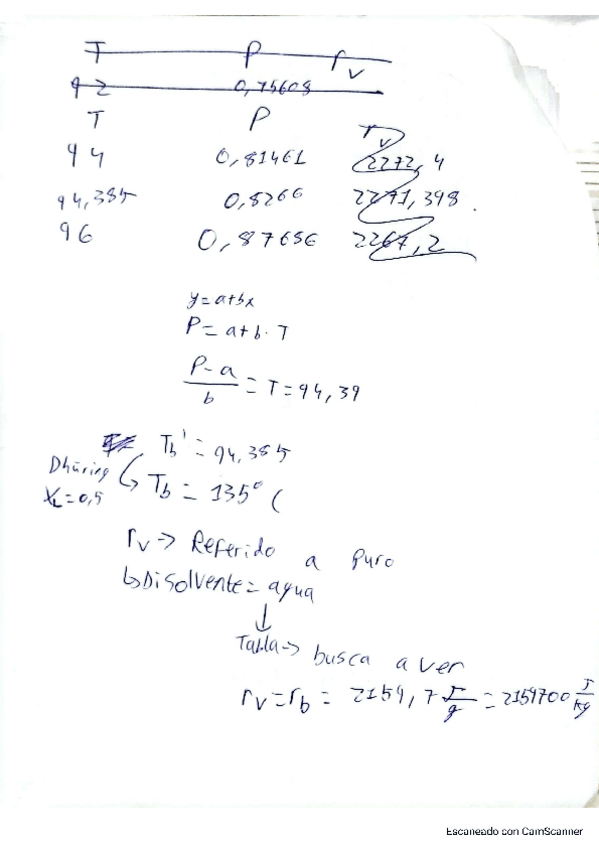 T P rv
92 0,75608
T P rv
94 0,81461 2272,4
94,385 0,8266 2271,398
96 0,87686 2267,2
y=a+bx
P=a+b·T
P-a/b = T=94,39
Tb' = 94,385
Dhüring
XL=0,5
Tb = 135°C
rv → Referido a puro
↳ Disolvente = agua
↓
Tabla → busca a ver
rv=rb = 2159,7 J/g = 2159700 J/kg
Escaneado con CamScanner